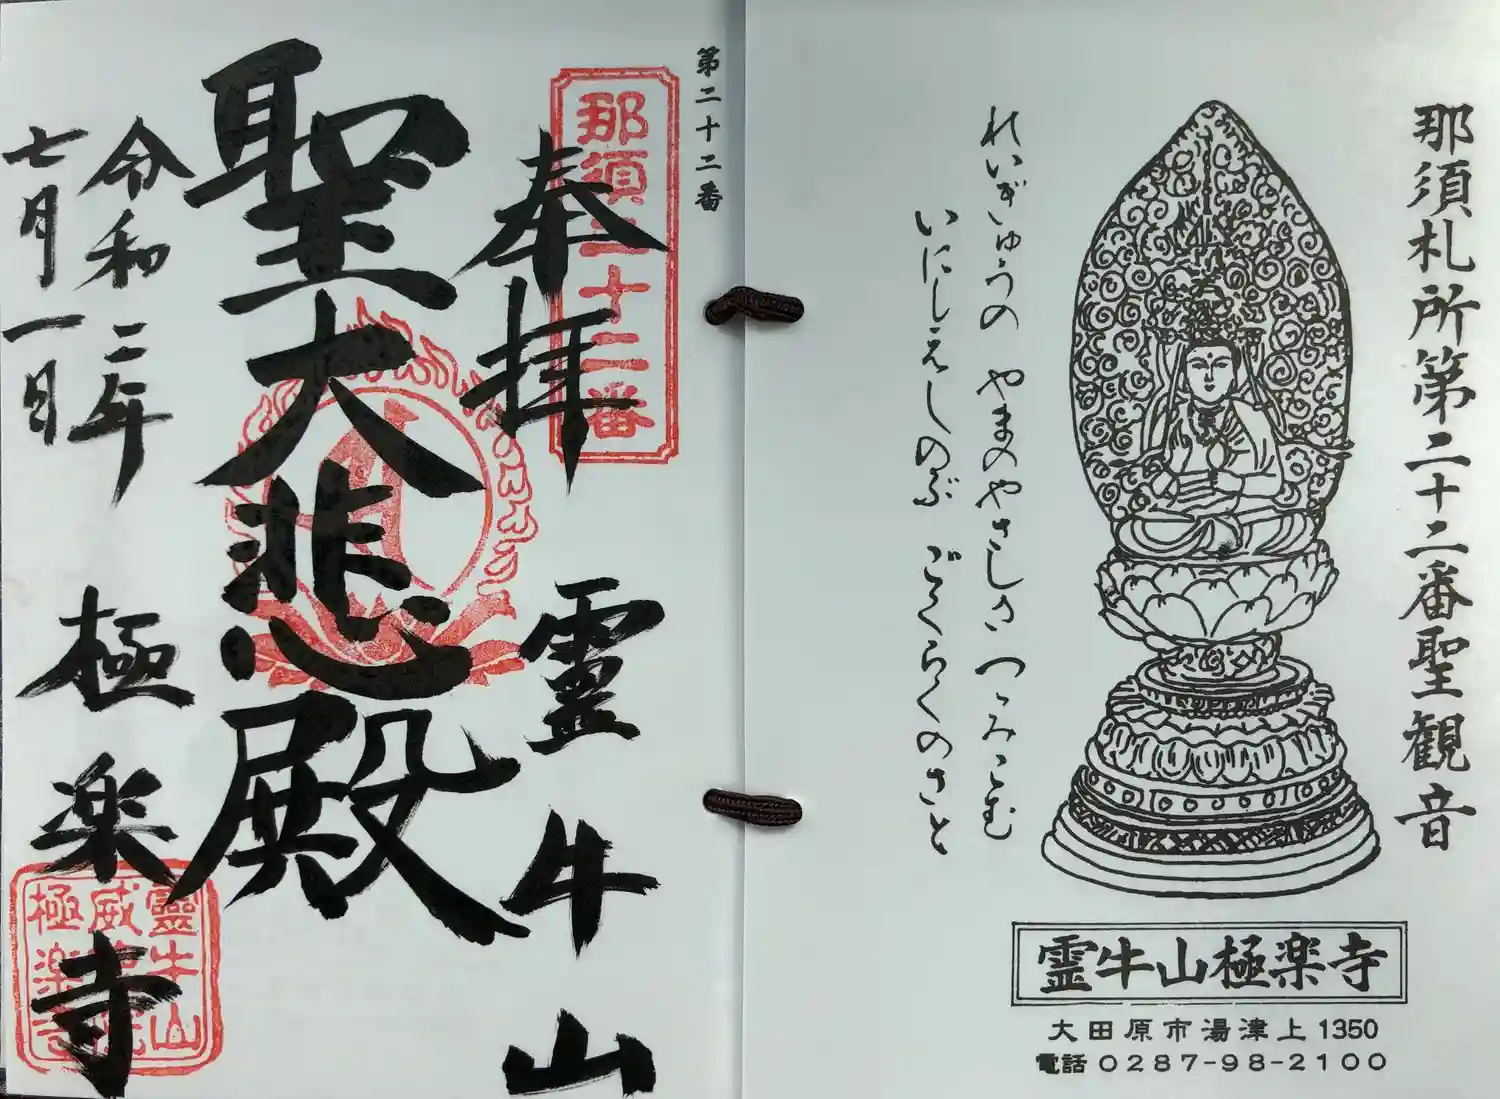 那須札所第二十二番聖観音
れいぎゅうの やまのやさしさ つつみこむ
いにしえしのぶ ごくらくのさと
霊牛山極楽寺
大田原市湯津上1350
電話0287-98-2100
第二十二番
那須二十二番
奉拝 霊牛山
聖大悲殿
令和二年
七月一日
極楽寺
靈牛山
威
極楽寺